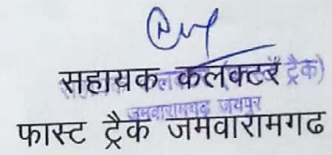 सहायक कलक्टर ट्रैक)
जमवारामगढ़ जयपुर
फास्ट ट्रैक जमवारामगढ